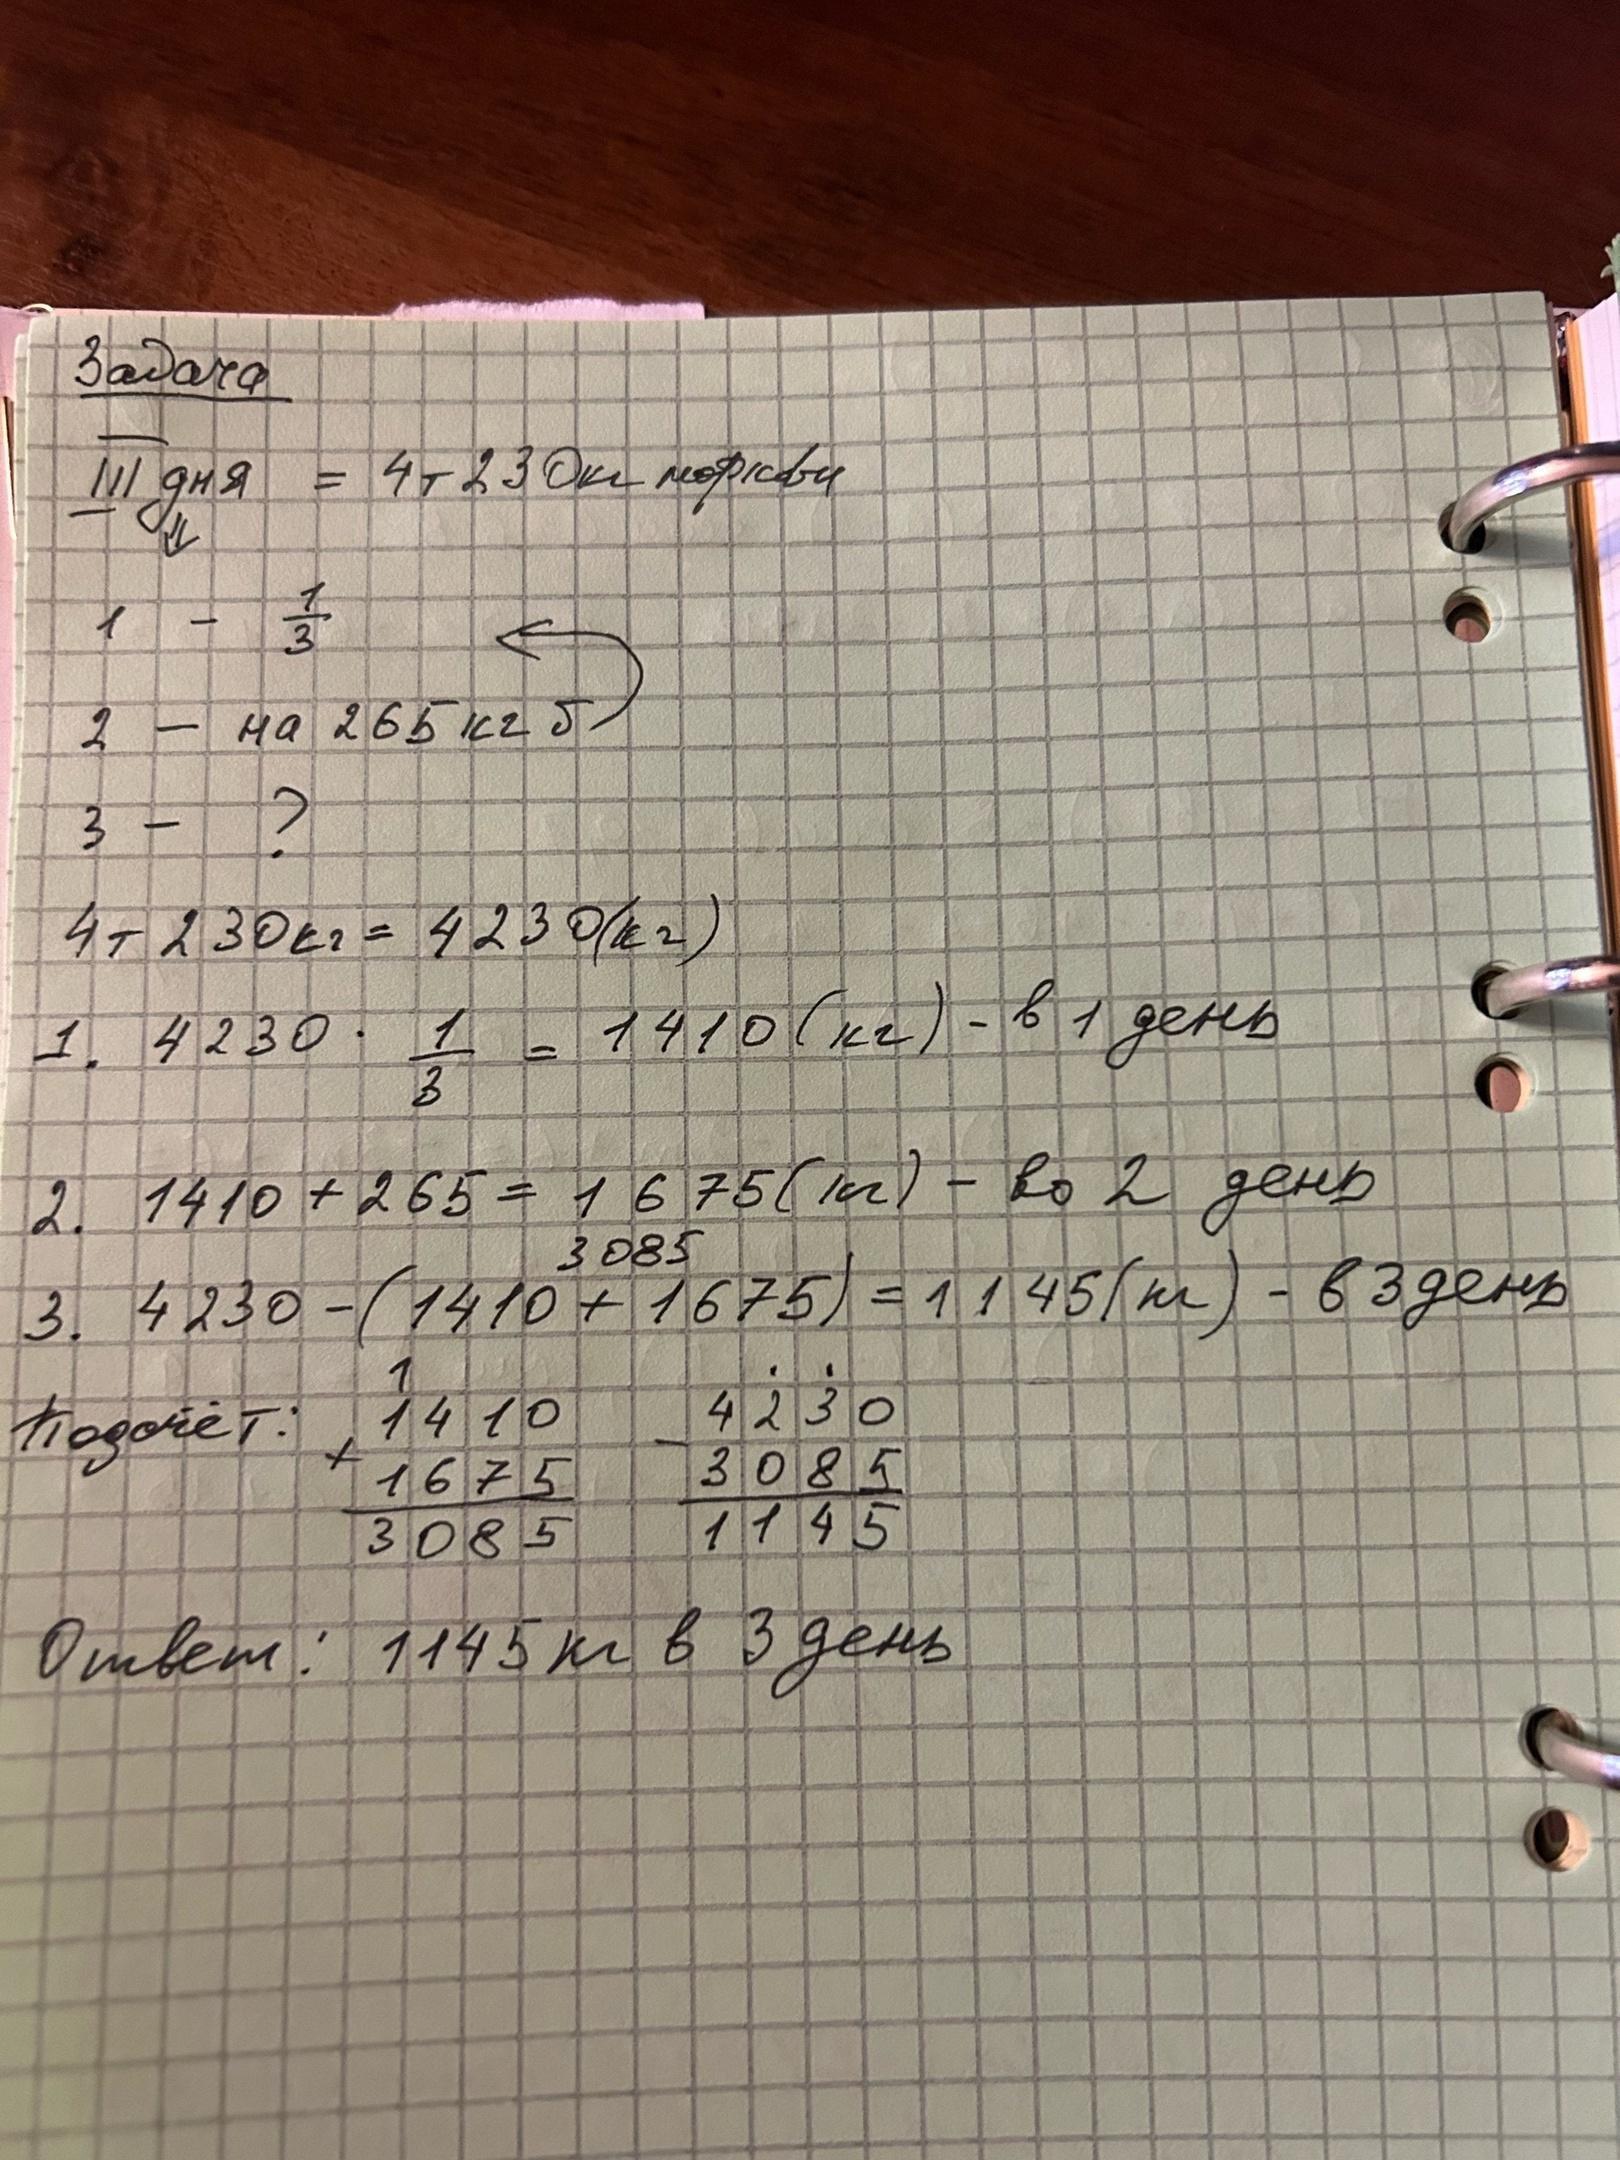 Задача
III дня = 4т 230кг моркови
1 - 1/3
2 - на 265кг б
3 - ?
4т 230кг = 4230(кг)
1. 4230 · 1/3 = 1410(кг) - в 1 день
2. 1410 + 265 = 1675(кг) - во 2 день
3085
3. 4230 - (1410 + 1675) = 1145(кг) - в 3 день
Подсчёт:
1
1410
+
1675
3085
4230
-
3085
1145
Ответ: 1145кг в 3 день